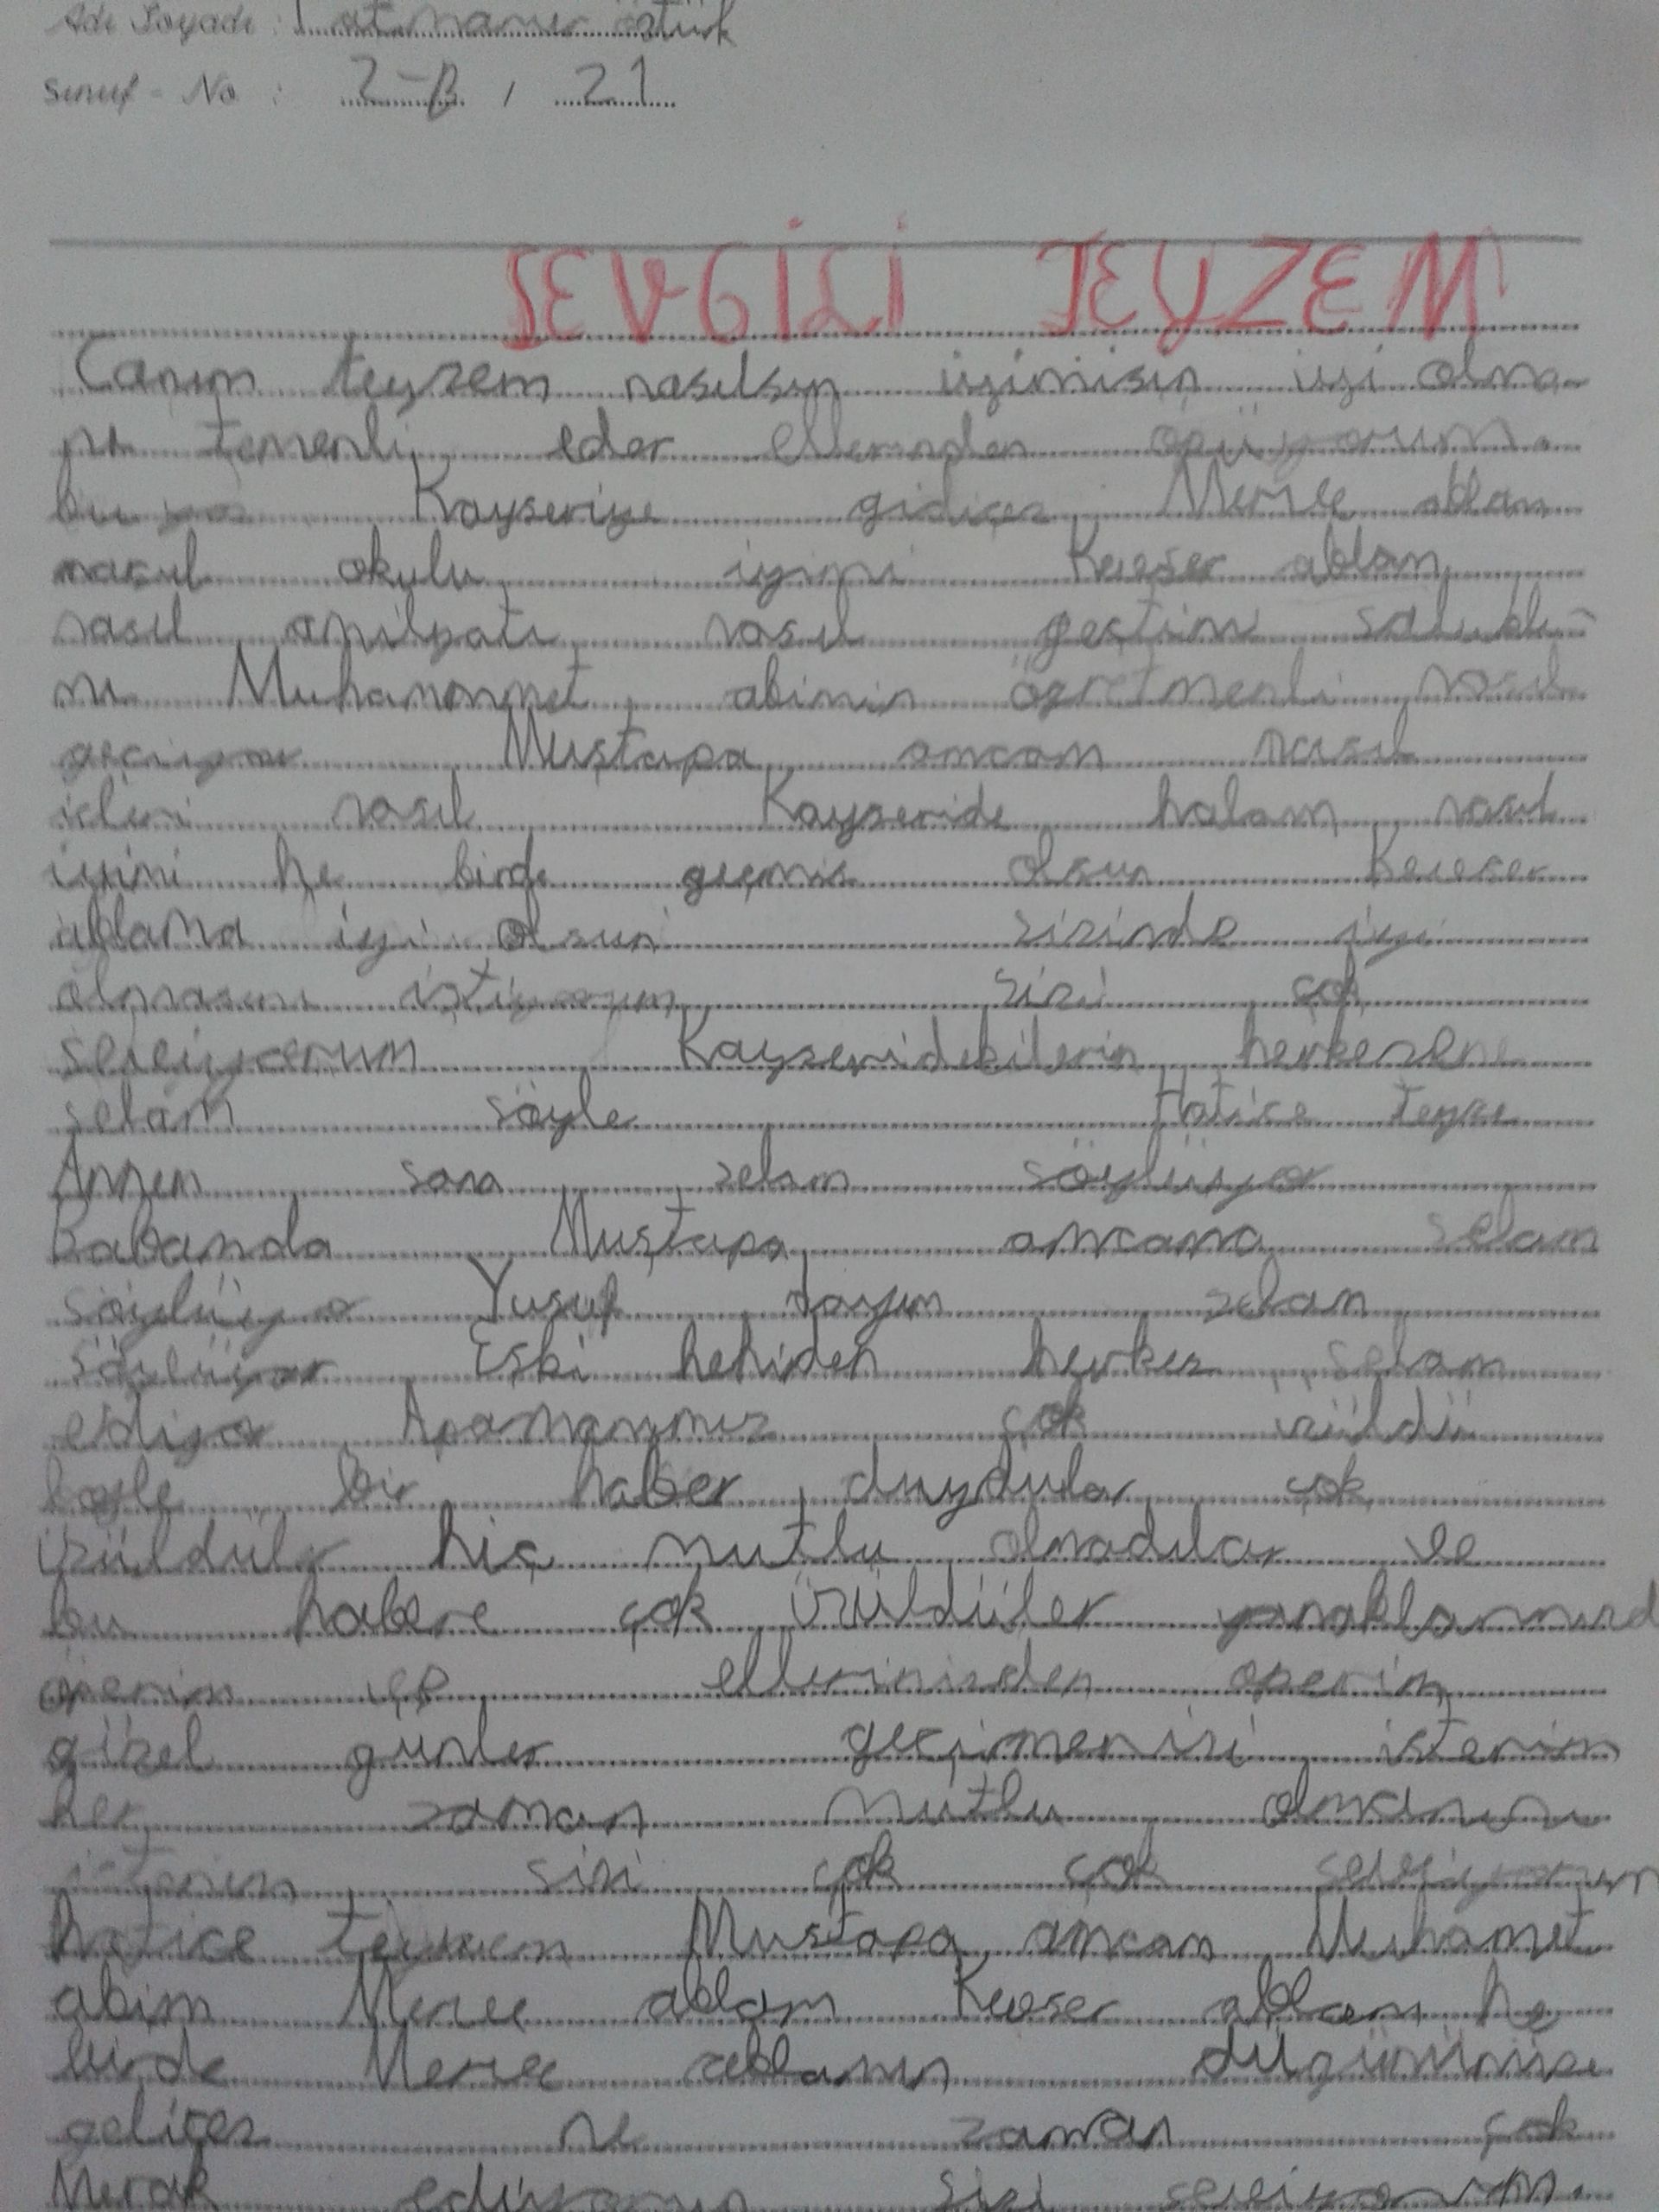 Adı Soyadı : öztürk
Sınıf - No : 2-B , 21
SEVGİLİ TEYZEM
Canım teyzem nasılsın iyimisin iyi olma-
nı temenli eder ellerinden öpüyorum.
bu yaz Kayseriye gidicez Merve ablam
nasıl okulu iyimi Kevser ablam
nasıl nasıl geçtimi
nı Muhammet abimin nasıl
geçiyor Mustapa amcam nasıl
isleri nasıl Kayseride halam nasıl
iyimi he birde geçmis olsun Kevser
ablama iyi olsun sizinde iyi
olmasını istiyorum sizi çok
seviyorum Kayseridekilerin herkezene
selam söyle Hatice teyze
Annem sana selam söylüyor
Babamda Mustapa amcama selam
söylüyor Yusuf dayım selam
söylüyor Eski herkes selam
ediyor çok üzüldü
boyle bir haber duydular çok
üzüldüler hiç mutlu olmadılar ve
bu habere çok üzüldüler
öperim ve ellerinizden operim
güzel günler geçimenizi isterim
her zaman mutlu
isterim sizi çok çok seviyorum
hatice teyzem Mustapa amcam Muhamet
abim Merve ablam Kevser ablam he
birde Merve ablamın düğününüze
gelicez ne zaman çok
Merak ediyorum sizi seviyorum.